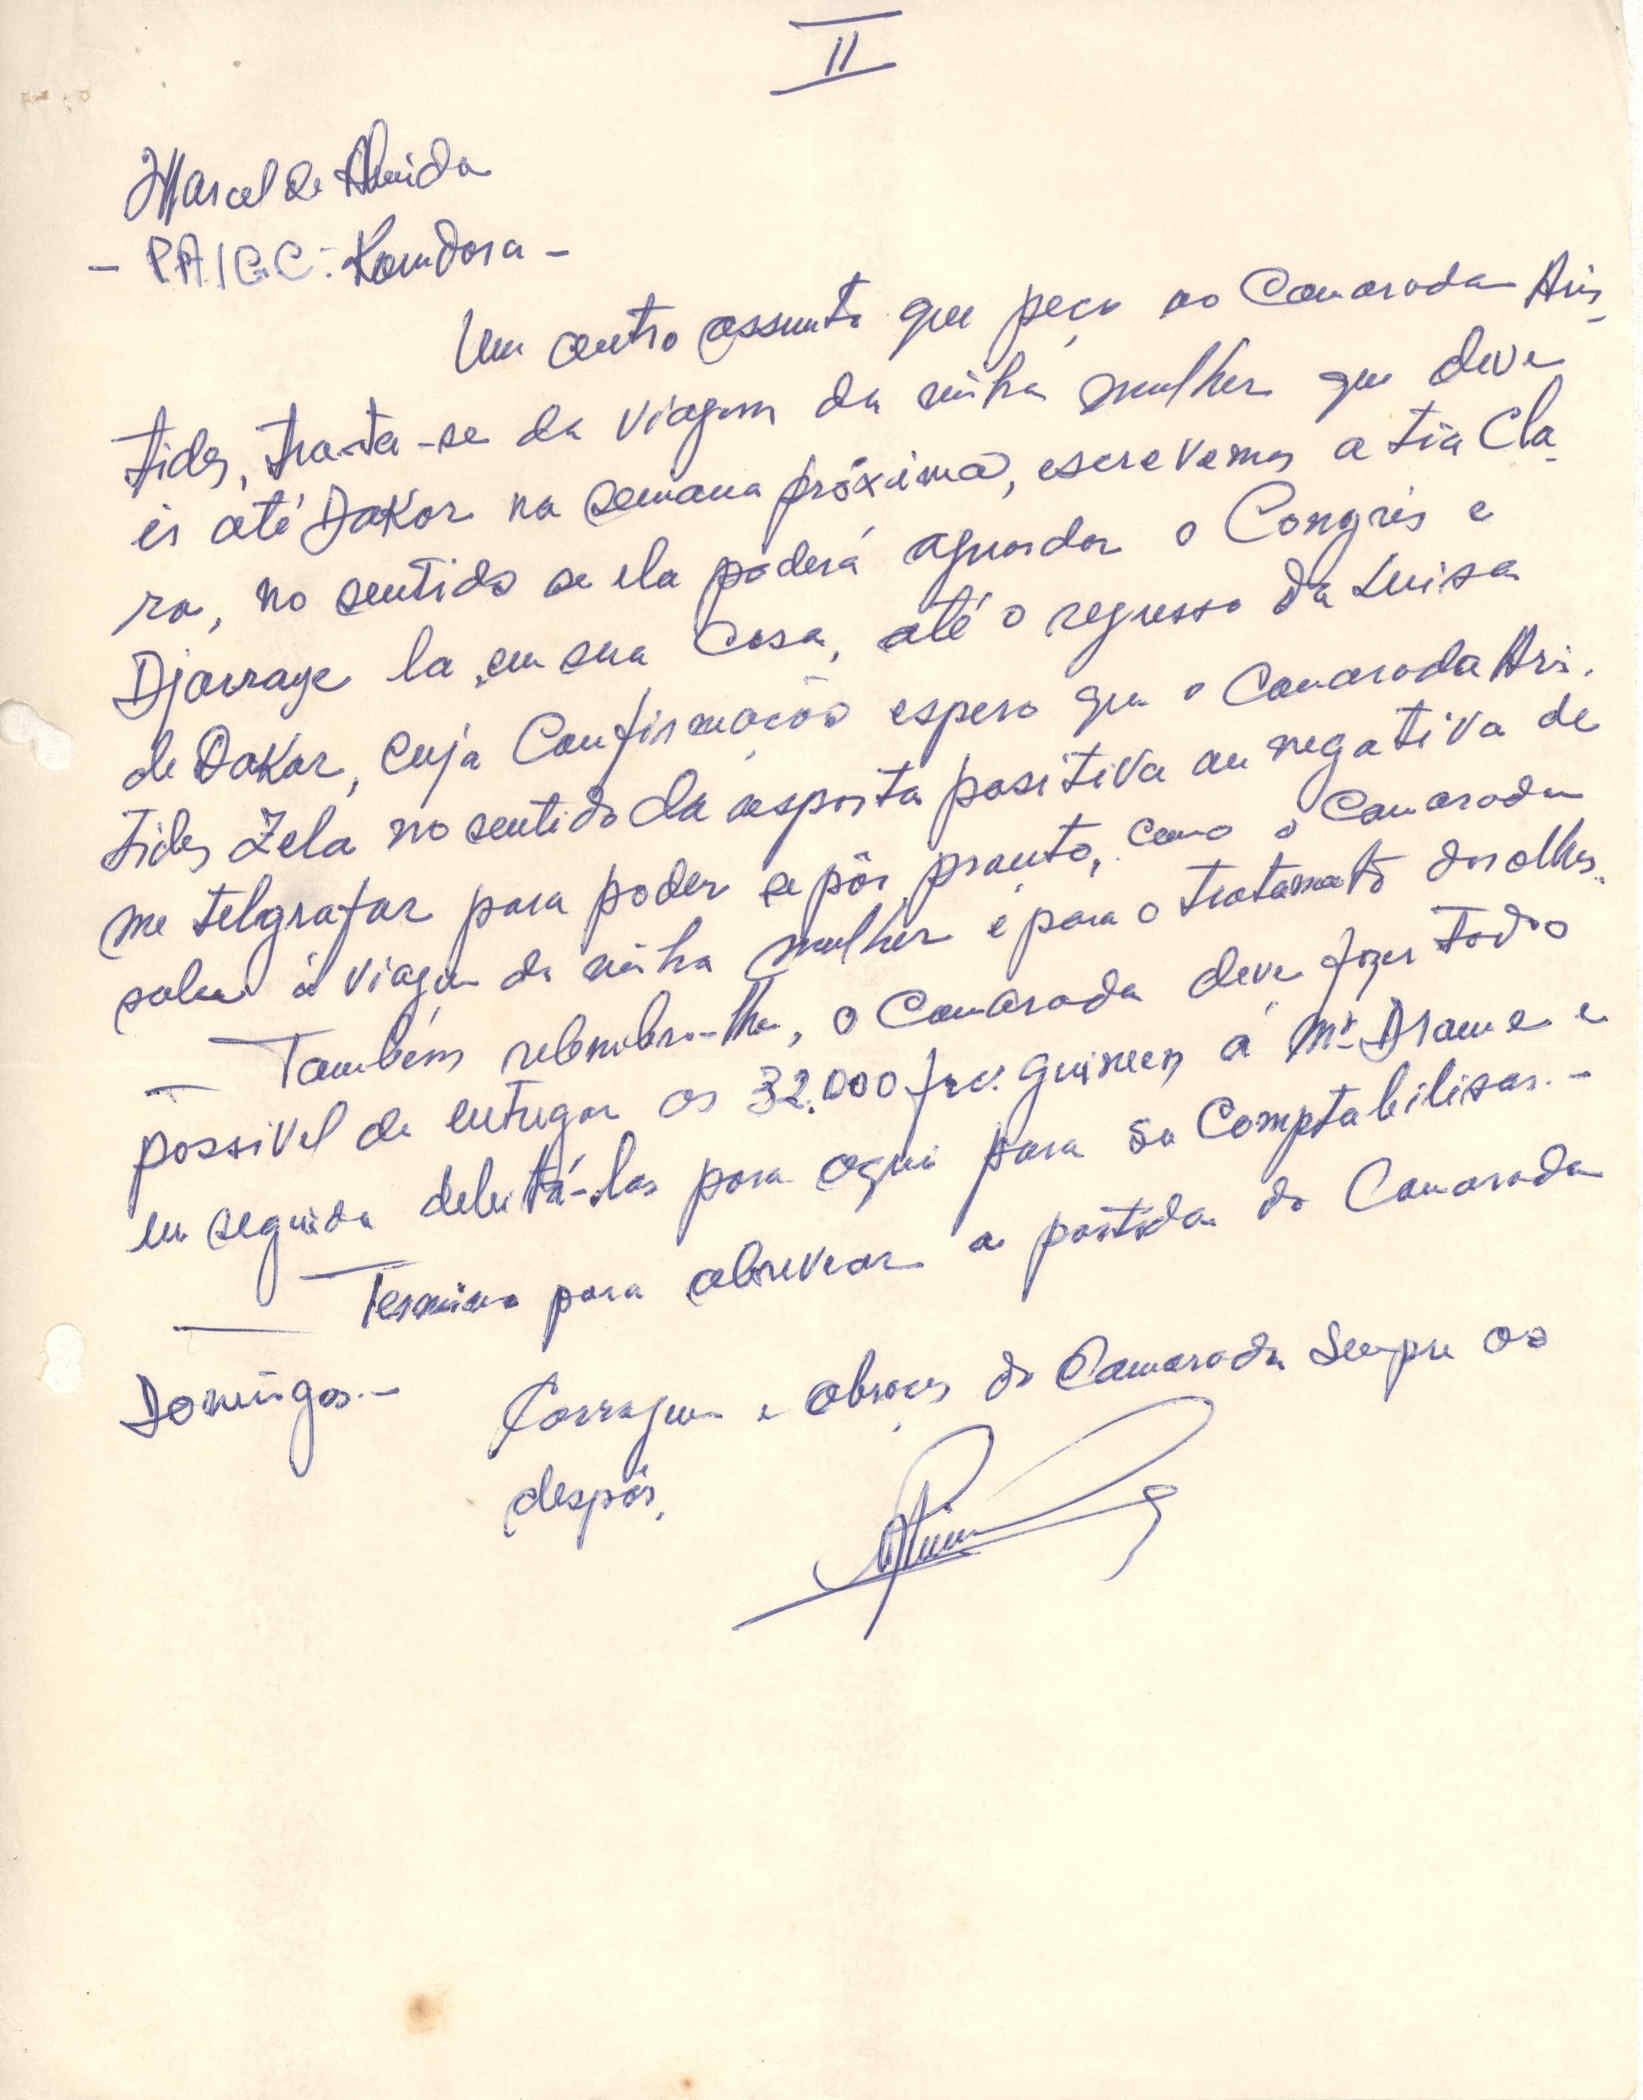 II
Marcel de Almeida
- P.A.I.G.C. Koundara -
Um outro assunto que peço ao Camarada Aris-
tides, trata-se da viagem da minha mulher que deve
ir até Dakar na semana próxima, escrevemos a tia Cla-
ra, no sentido se ela poderá aguardar o Congrès e
Djarraye la em sua Casa, até o regresso da Luisa
de Dakar, cuja Confirmação espero que o Camarada Aris-
tides Zela no sentido da resposta positiva ou negativa de
me telgrafar para poder se pôr pronto, como o Camarada
sabe à viagem da minha mulher é para o tratamento dos olhos.
— Também relembro-lhe, o Camarada deve fazer todo
possivel de entregar os 32.000 frcs. guineens á Mr. Drame e
em seguida debitá-los para aqui para se Comptabilisar.-
— Termino para abrevear a partida do Camarada
Domingos.-
Corragem e abraços do Camarada Sempre ao
despôr,